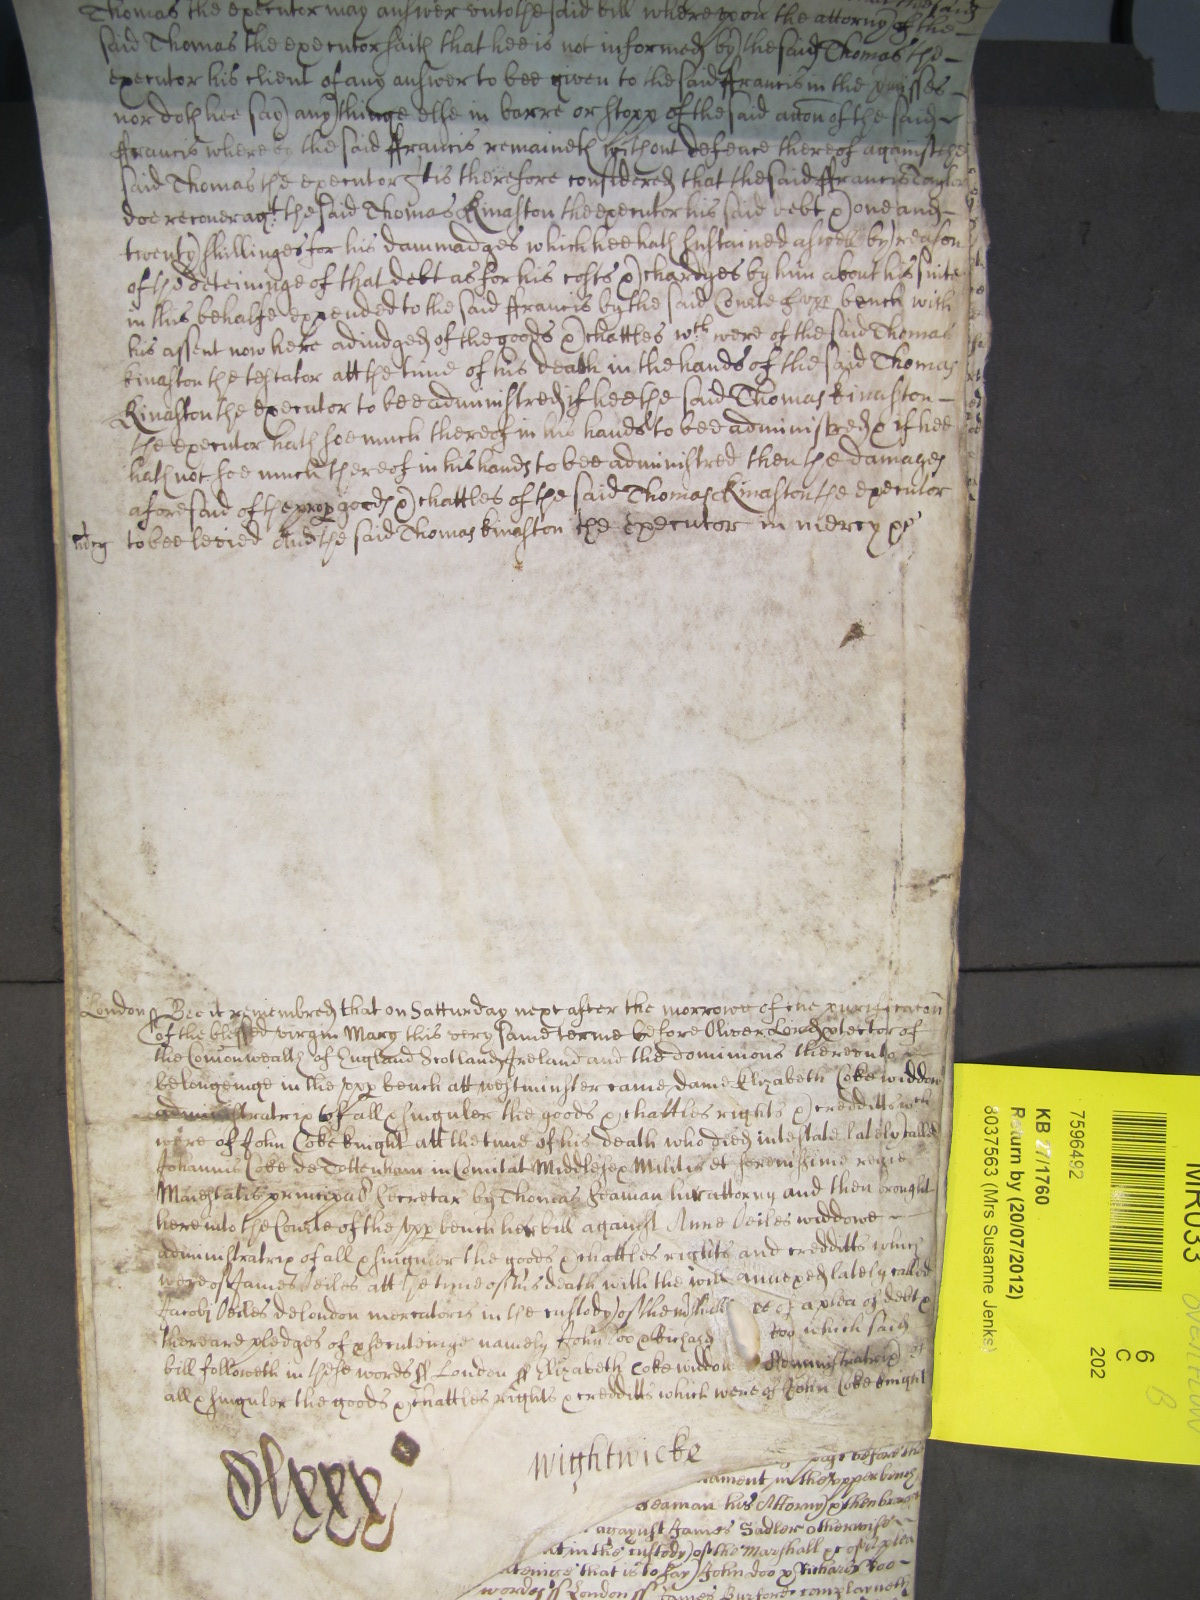 Thomas the executor may answer unto the said bill whereupon the attorny of the
said Thomas the executor saith that hee is not informed by the said Thomas the
executor his client of any answer to bee given to the said ffrancis in the pmisses
nor doth hee say any thinge else in barre or stopp of the said accon of the said
ffrancis whereby the said ffrancis remaineth without defence thereof against the
said Thomas the executor It is therefore considered that the said ffrancis Taylor
doe recover agt the said Thomas Kinaston the executor his said debt & one and
twenty shillinges for his dammadges which hee hath sustained aswell by reason
of the deteininge of that debt as for his costs & chardges by him about his suite
in this behalfe expended to the said ffrancis by the said Courte of upp bench with
his assent now here adiudged of the goods & chattles wch were of the said Thomas
Kinaston the testator att the time of his death in the hands of the said Thomas
Kinaston the executor to bee administred if hee the said Thomas Kinaston
the executor hath soe much thereof in his hands to bee administred & if hee
hath not soe much thereof in his hands to bee administred then the damages
aforesaid of the prop goods & chattles of the said Thomas Kinaston the executor
mcy to bee levied And the said Thomas Kinaston the executor in mercy &c
London ss Bee it remembred that on Satturday next after the morrowe of the purificacon
of the blessed virgin Mary this very same terme before Oliver Lord ptector of
the Comonwealth of England Scotland & Ireland and the dominions thereunto
belongeinge in the upp bench att westminster came dame Elizabeth Coke widdow
administratrix of all & singuler the goods & chattles rights & credditts wch
were of John Coke knight att the time of his death who died intestate lately called
Johannis Coke de Tottenham in Comitat Middlesex Militis et serenissime regie
Maiestatis principal Secretar by Thomas Seaman her attorny and then brought
here into the Courte of the upp bench her bill against Anne Veiles widdowe
administratrix of all & singuler the goods & chattles rights and credditts which
were of James Veiles att the time of his death with the will annexed lately called
Jacobi Veiles de London mercatoris in the custody of the Mshall &c of a plea of debt &
there are pledges of psecuteinge namely John Doo & Richard Roo which said
bill followeth in these words ss London ss Elizabeth Coke widdow Administratrix of
all & singuler the goods & chattles rights & credditts which were of John Coke knight
Wightwicke
page before the
nament in the upper bench
Seaman his Attorny & then brought
agaynst James Sadler otherwise
at in the custody of the Marshall &c of a plea
uteinge that is to say John doo & Richard Roo
wordes ss London ss James Burford complayneth
MR033
6
C
202
7596492
KB 27/1760
Return by (20/07/2012)
8037563 (Mrs Susanne Jenks)